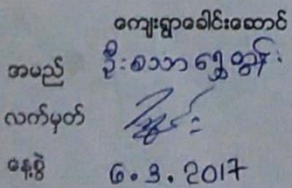 ကျေးရွာခေါင်းဆောင်
အမည် ဦးစသာရွှေထွန်း
လက်မှတ်
နေ့စွဲ 6.3.2017